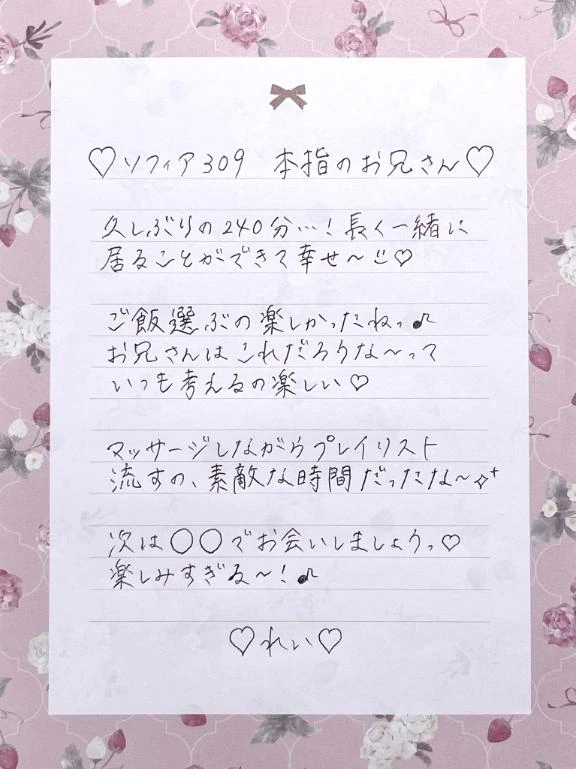 ♡ソフィア309 本指のお兄さん♡
久しぶりの240分…!長く一緒に
居ることができて幸せ〜☺♡
ご飯選ぶの楽しかったねっ♪
お兄さんはこれだろうな〜って
いつも考えるの楽しい♡
マッサージしながらプレイリスト
流すの、素敵な時間だったな〜✧⁺
次は〇〇でお会いしましょうっ♡
楽しみすぎる〜!♪
♡れい♡